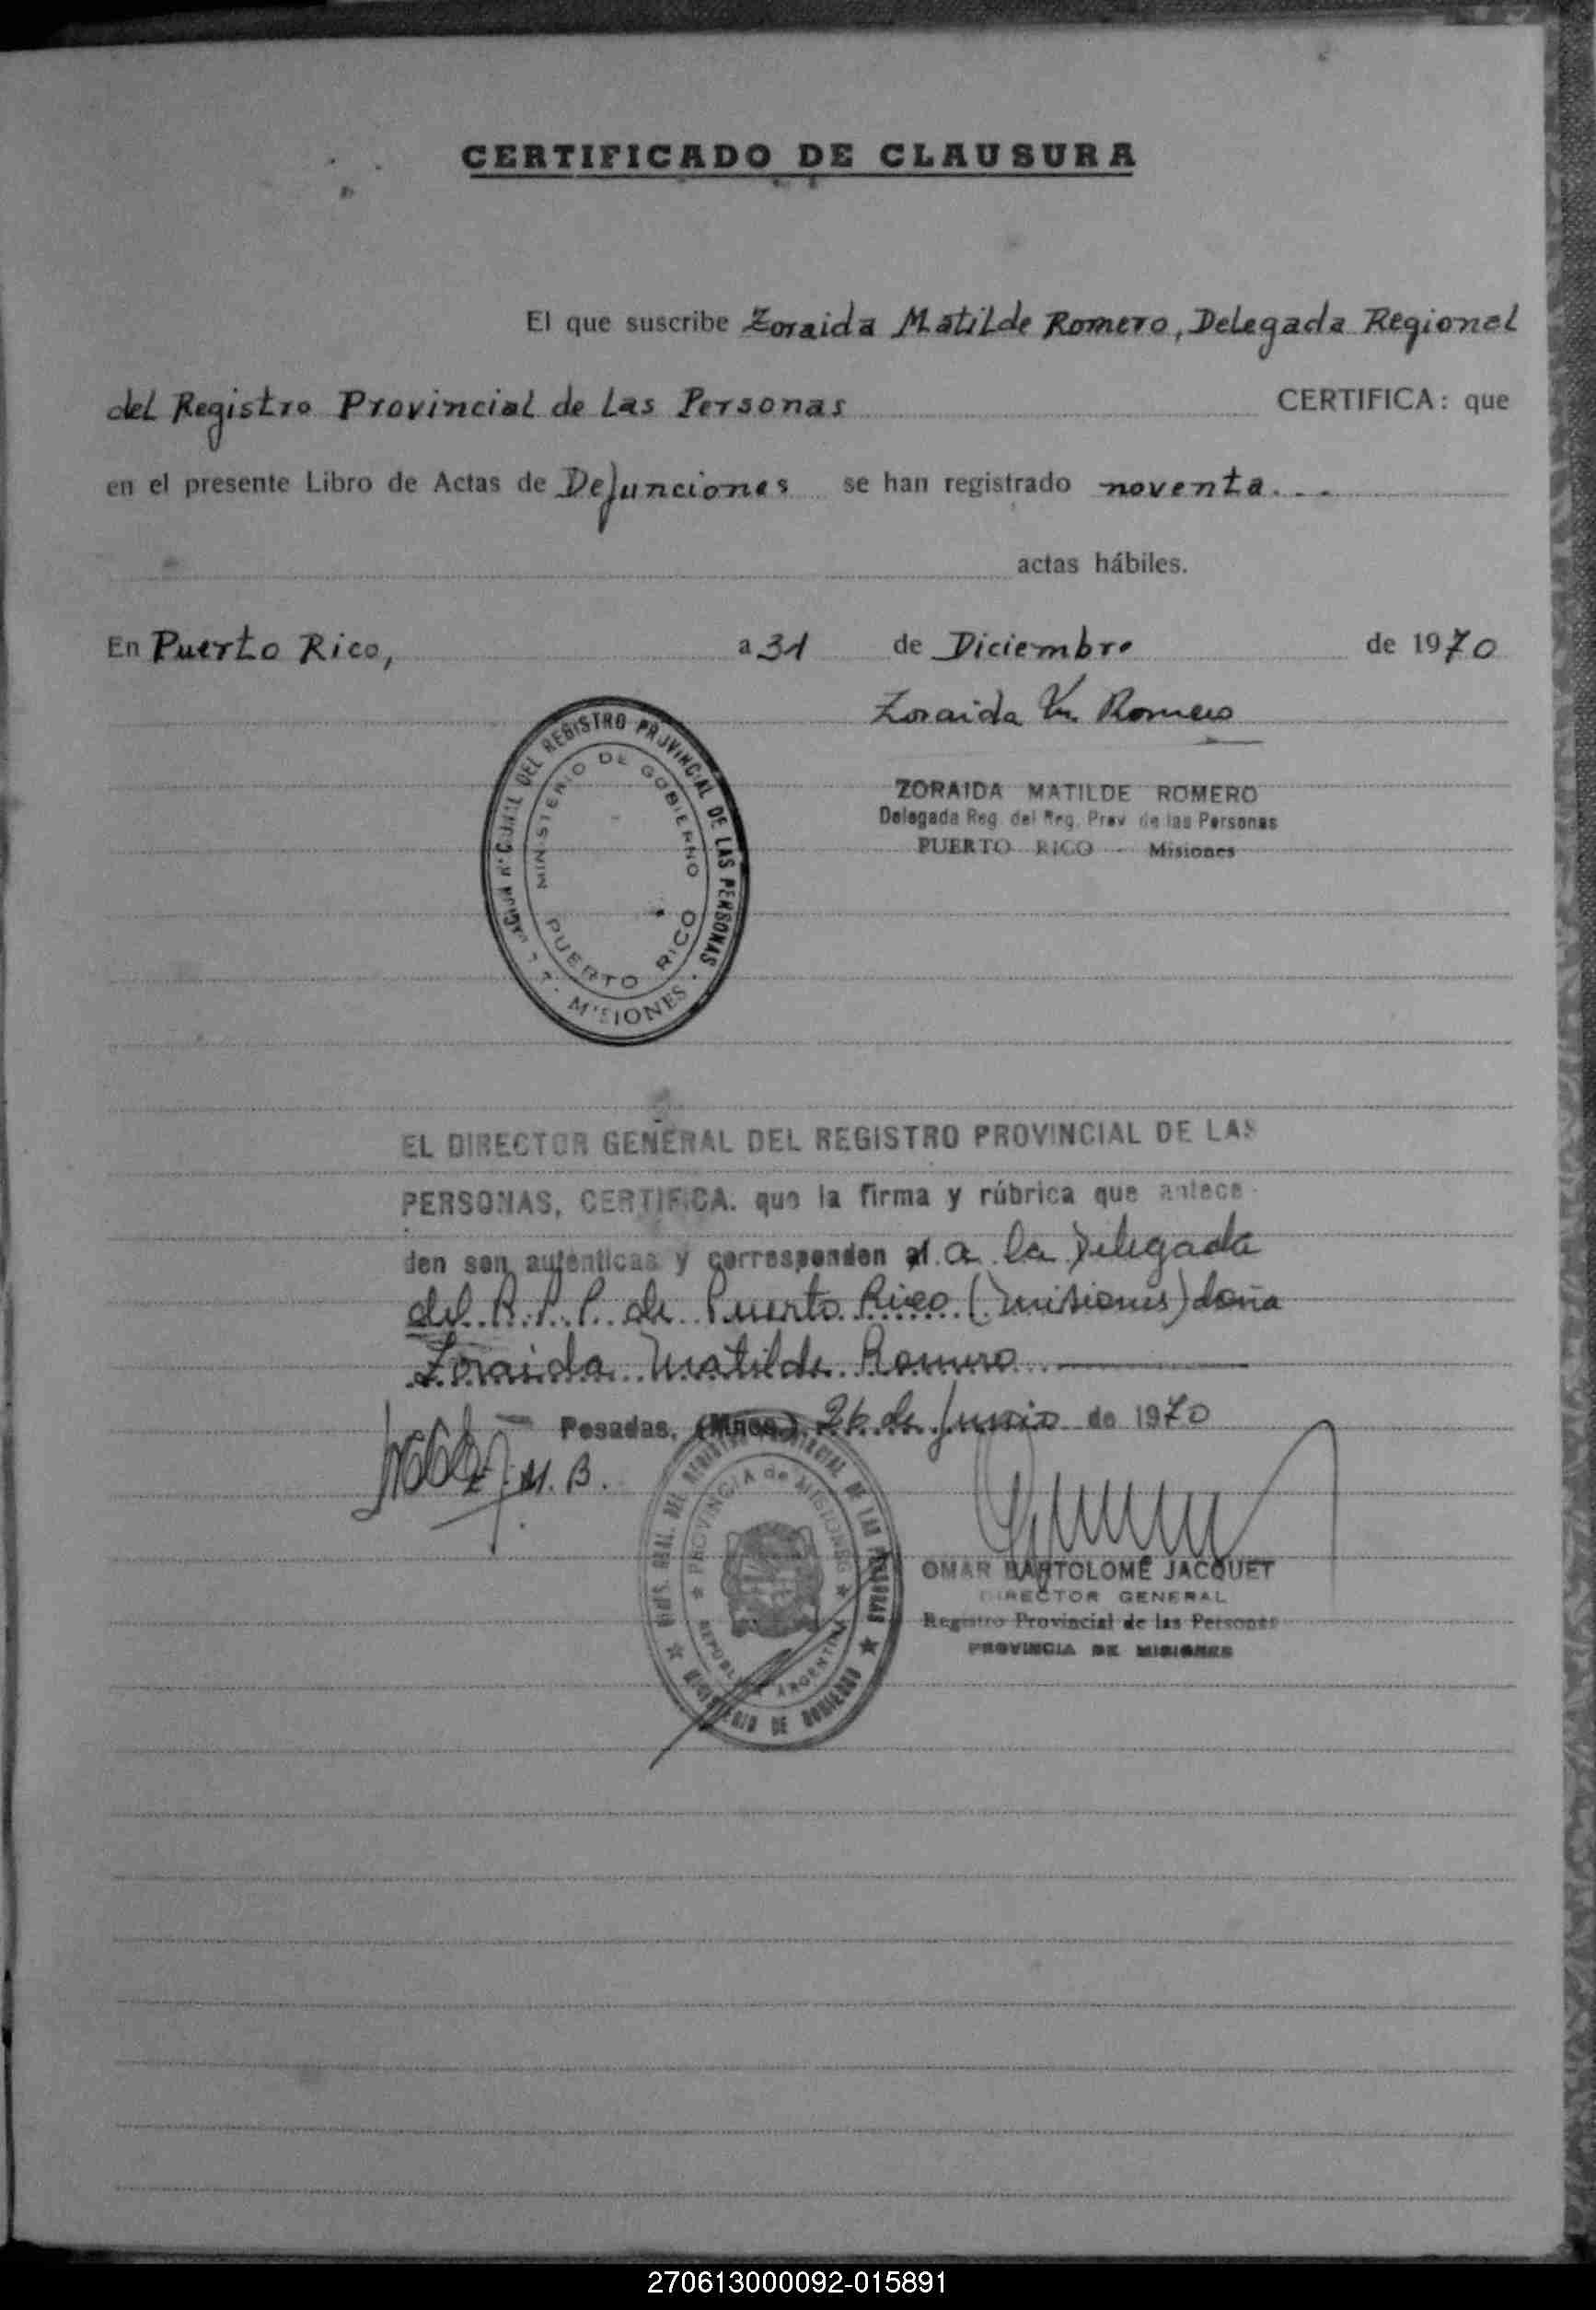 CERTIFICADO DE CLAUSURA
El que suscribe Zoraida Matilde Romero, Delegada Regional
del Registro Provincial de Las Personas CERTIFICA: que
en el presente Libro de Actas de Defunciones se han registrado noventa...
actas hábiles.
En Puerto Rico, a 31 de Diciembre de 1970
Zoraida M. Romero
ZORAIDA MATILDE ROMERO
Delegada Reg. del Reg. Prov de las Personas
PUERTO RICO - Misiones
DEL REGISTRO PROVINCIAL DE LAS PERSONAS
MINISTERIO DE GOBIERNO
PUERTO RICO
MISIONES
EL DIRECTOR GENERAL DEL REGISTRO PROVINCIAL DE LAS
PERSONAS, CERTIFICA. que la firma y rúbrica que antece-
den son autenticas y corresponden al a la Delegada
del R.P.P. de Puerto Rico (Misiones) doña
Zoraida Matilde Romero
Posadas, (Mnes.), 26 de Junio de 1970
M. B.
DEL REGISTRO PROVINCIAL DE LAS PERSONAS
PROVINCIA de MISIONES
REPUBLICA ARGENTINA
MINISTERIO DE GOBIERNO
OMAR BARTOLOMÉ JACQUET
DIRECTOR GENERAL
Registro Provincial de las Personas
PROVINCIA DE MISIONES
270613000092-015891